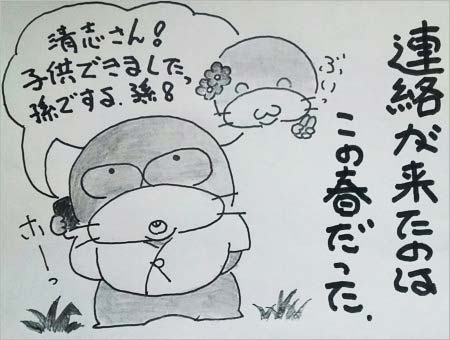 連絡が来たのは
この春だった.
清志さん!
子供できましたっ
孫ですよ.孫!
ぶいっ
ホーっ